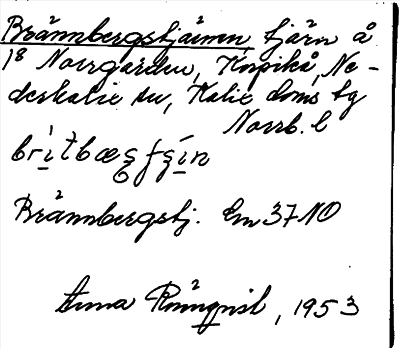 Brännbergstjärnen tjärn å
18 Norrgården, Korpikå, Ne-
derkalix sn, Kalix doms tg
Norrb. l
Brännbergstj. Em 37 NO
Anna Rönnqvist, 1953